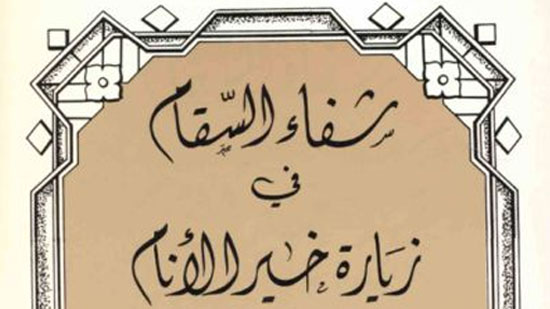 شفاء السّقام
في
زيارة خير الأنام